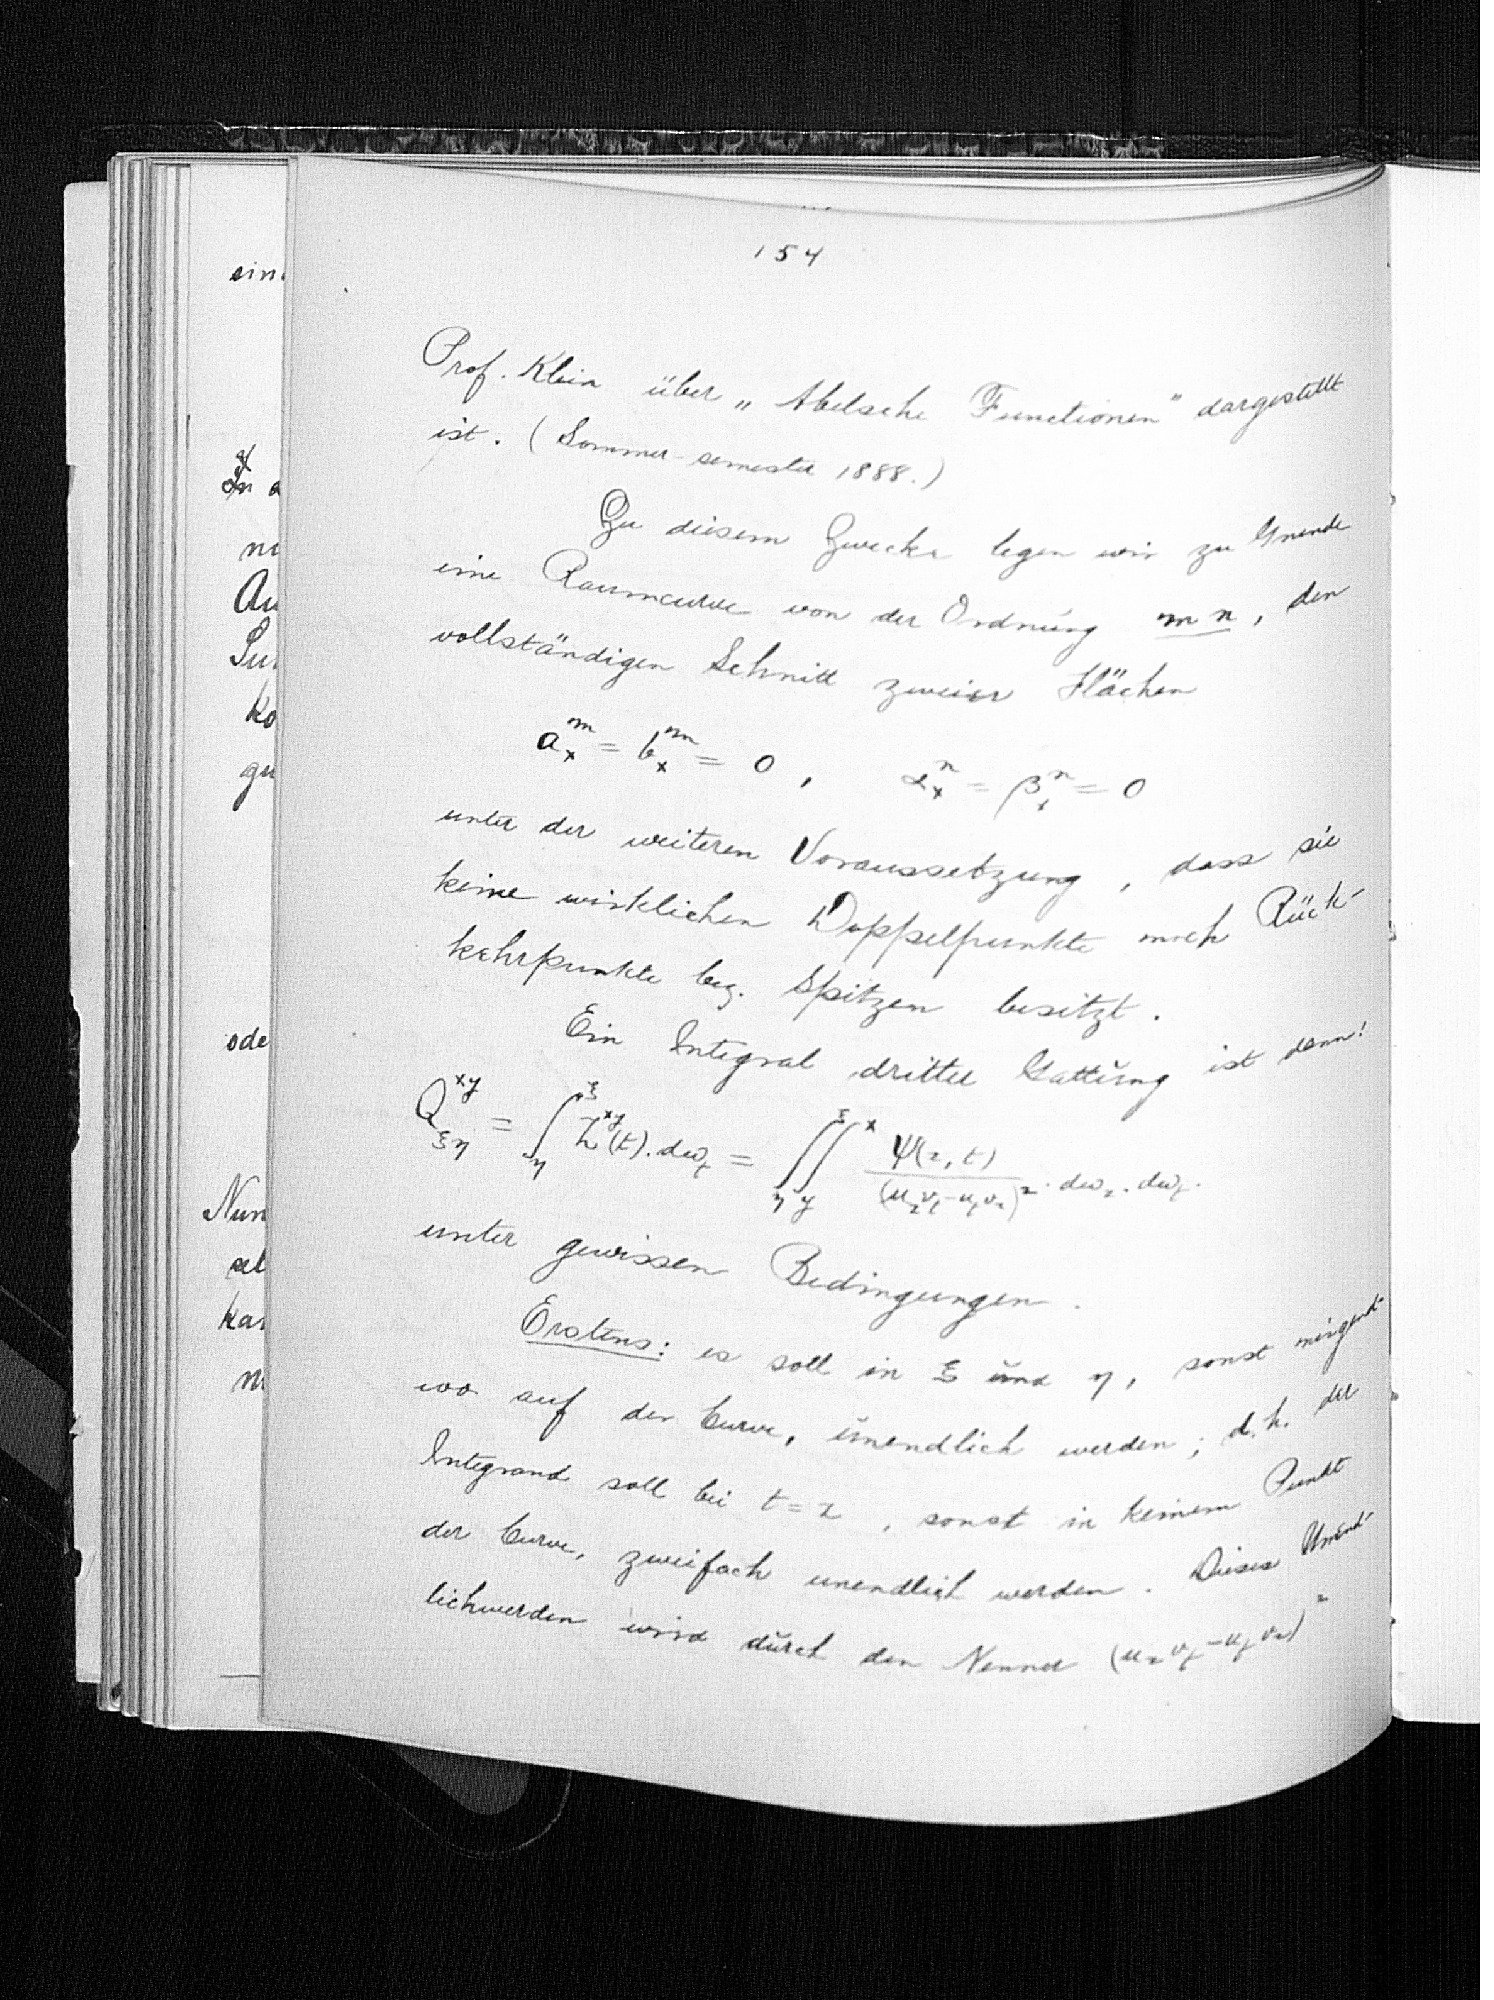 154
Prof. Klein über „Abelsche Functionen" dargestellt
ist. (Sommer-semester 1888.)
Zu diesem Zwecke legen wir zu Grunde
eine Raumcurve von der Ordnung m n, den
vollständigen Schnitt zweier Flächen
a_x^m = b_x^m = 0, α_x^n = β_x^n = 0
unter der weiteren Voraussetzung, dass sie
keine wirklichen Doppelpunkte noch Rück-
kehrpunkte bez. Spitzen besitzt.
Ein Integral dritter Gattung ist dann:
Q_{ξη}^{xy} = ∫_η^ξ Z^{xy}(t). dω_t = ∫∫_{η y}^{ξ x} ψ(z, t) / (u_z v_t - u_t v_z)^2 . dω_z . dω_t.
unter gewissen Bedingungen.
Erstens: es soll in ξ und η, sonst nirgend-
wo auf der Curve, unendlich werden; d.h. der
Integrand soll bei t = z, sonst in keinem Punkt
der Curve, zweifach unendlich werden. Dieses Unend-
lichwerden wird durch den Nenner (u_z v_t - u_t v_z)^2
sein
In
Au
ko
gu
ode
Nun
sel
kan